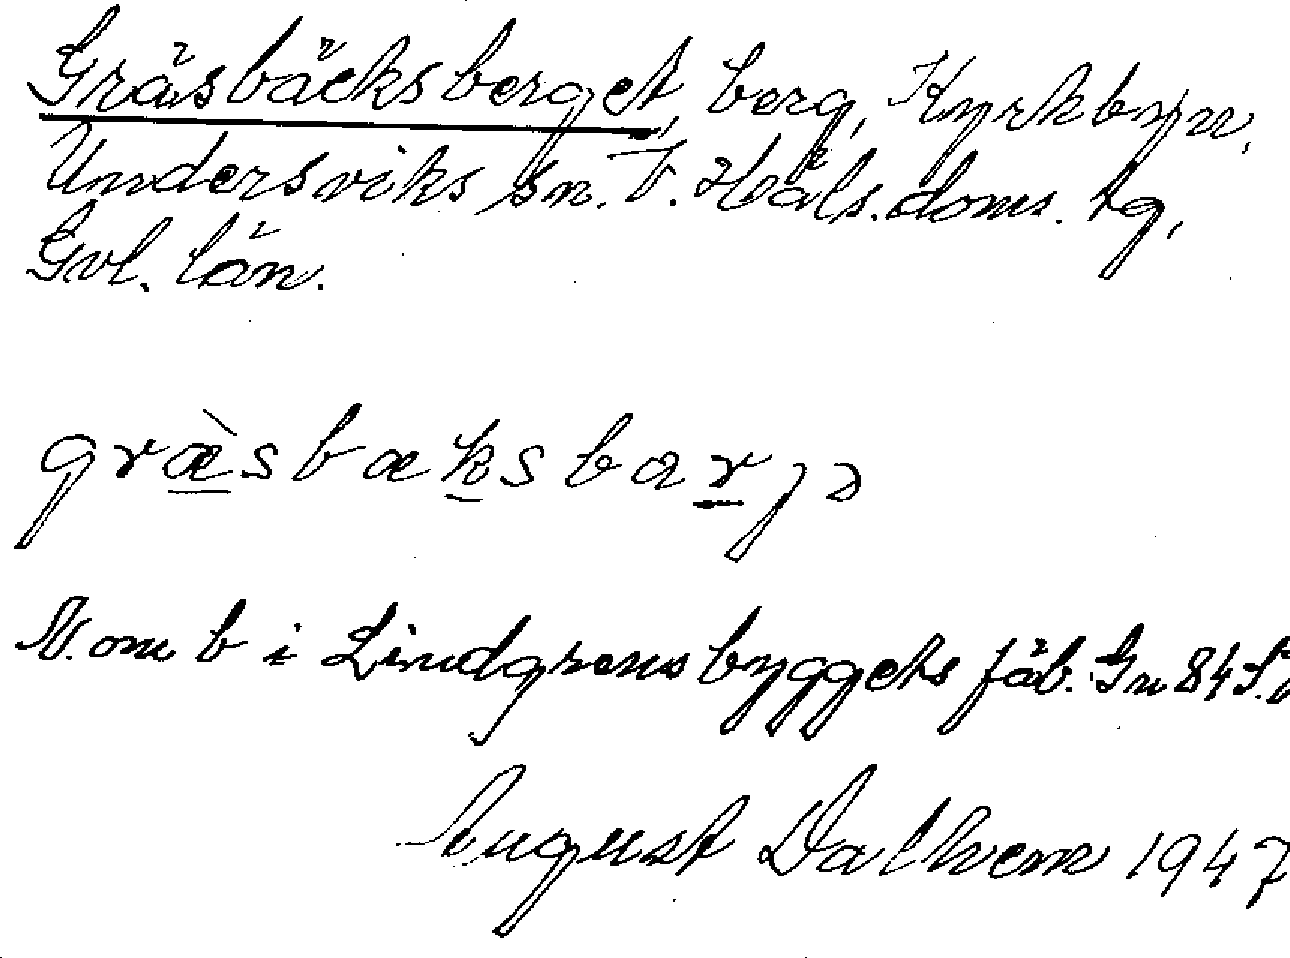 Gräsbäcksberget, berg, Kyrkbyn,
Undersviks sn. V. Häls. doms. tg,
Gvl. län.
græ̀sbæksbarjə
N. om b i Lindgrensbyggets fäb. Gn 84 S.
August Dalhem 1947